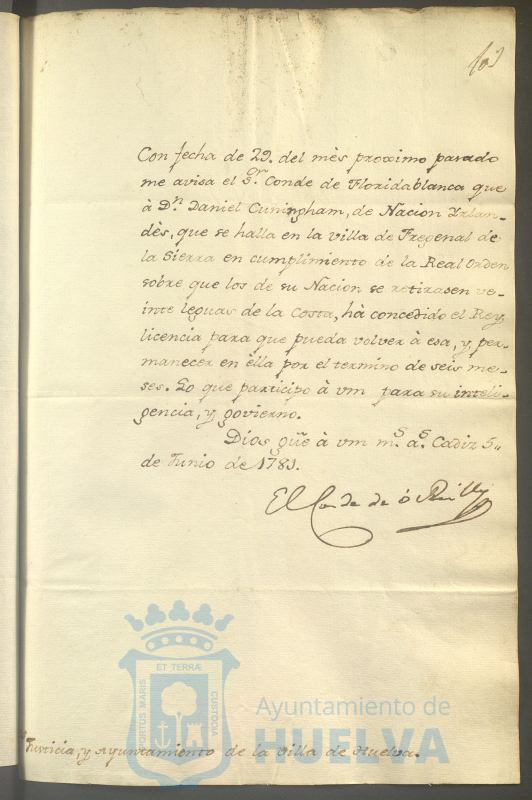 Con fecha de 29. del mès proximo pasado
me avisa el S.or Conde de Floridablanca que
à D.n Daniel Cuningham, de Nacion Yrlan-
dès, que se halla en la villa de Fregenal de
la Sierra en cumplimiento de la Real Orden
sobre que los de su Nacion se retirasen ve-
inte leguas de la Costa, hà concedido el Rey
licencia para que pueda volver à esa, y per-
manecer en ella por el termino de seis me-
ses. Lo que participo à vm para su inteli-
gencia, y govierno.
Dios gûe à vm m.s a.s Cadiz 5,,
de Junio de 1781.
El Conde de ó Reilly
ET TERRÆ
PORTUS MARIS
CUSTODIA
Ayuntamiento de
HUELVA
Justicia, y Ayuntamiento de la villa de Huelva.